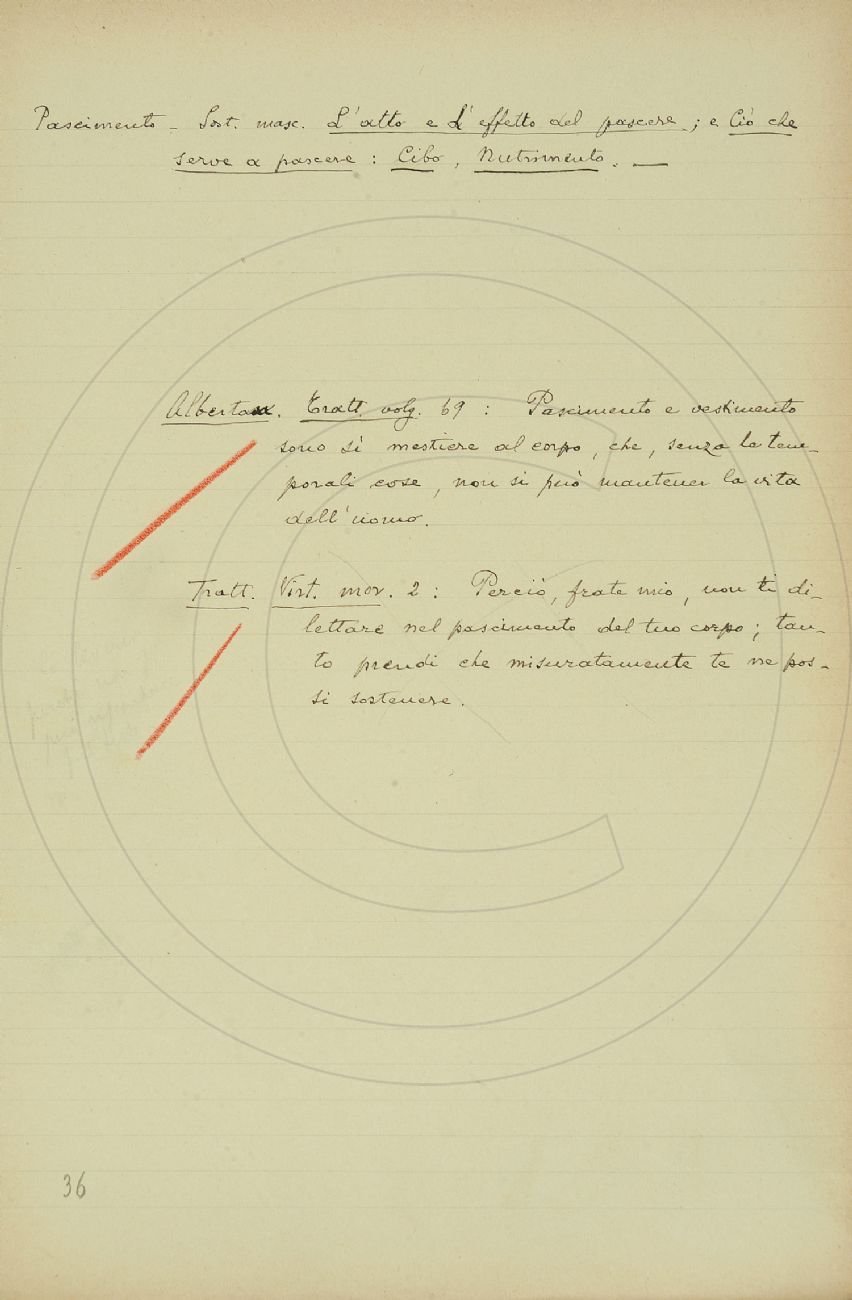 Pascimento – Sost. masc. L'atto e L'effetto del pascere; e Ciò che
serve a pascere: Cibo, Nutrimento. —
Albertan. Tratt. volg. 69: Pascimento e vestimento
sono sì mestiere al corpo, che, senza le tem-
porali cose, non si può mantener la vita
dell'uomo.
Tratt. Virt. mor. 2: Perciò, frate mio, non ti di-
lettare nel pascimento del tuo corpo; tan-
to prendi che misuratamente te ne pos-
si sostenere.
36